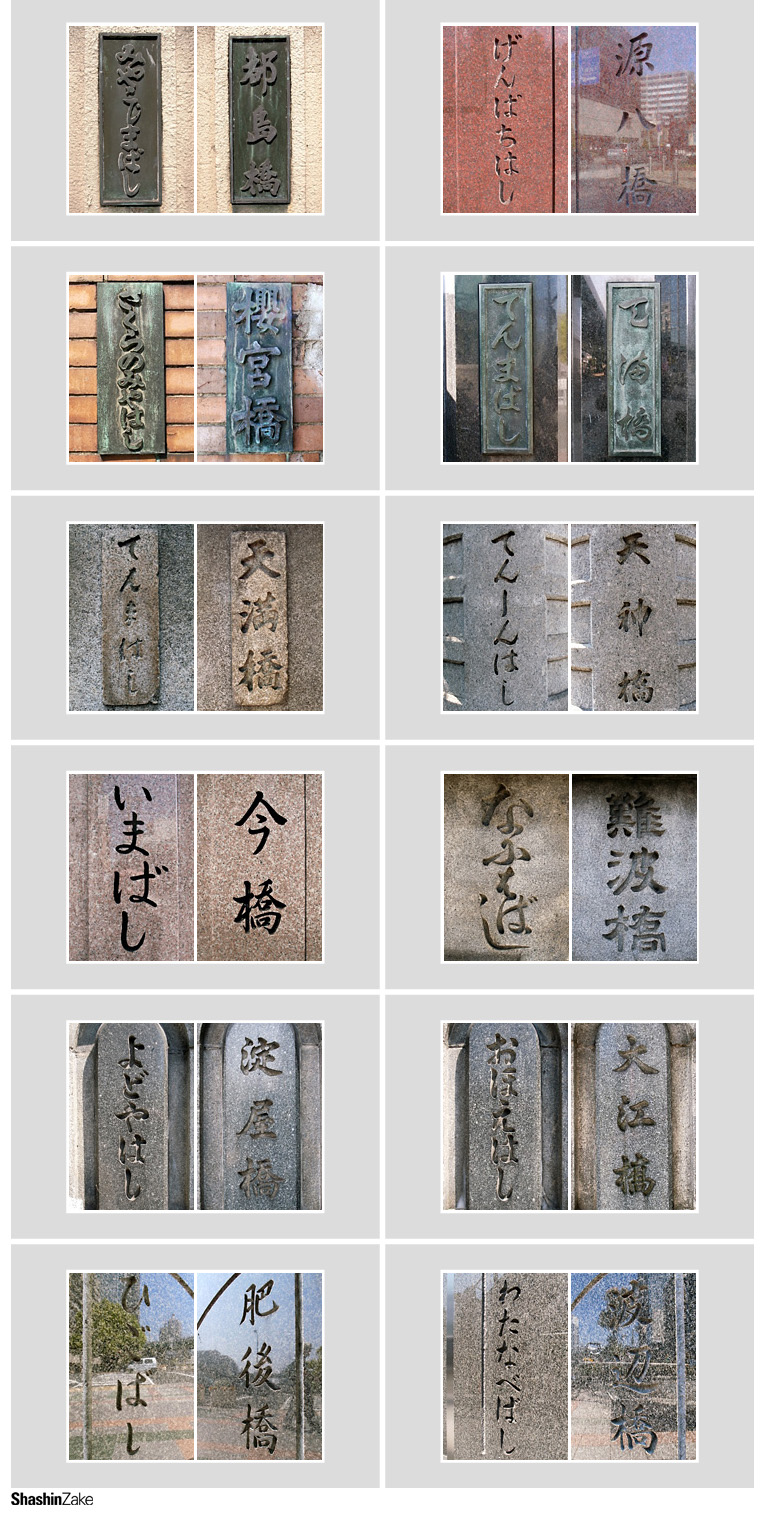 みやこじまばし
都島橋
げんばちはし
源八橋
さくらのみやはし
櫻宮橋
てんまばし
天満橋
てんまはし
天満橋
てんしんはし
天神橋
いまばし
今橋
なにはばし
難波橋
よどやはし
淀屋橋
おほえはし
大江橋
ひごはし
肥後橋
わたなべばし
渡辺橋
ShashinZake